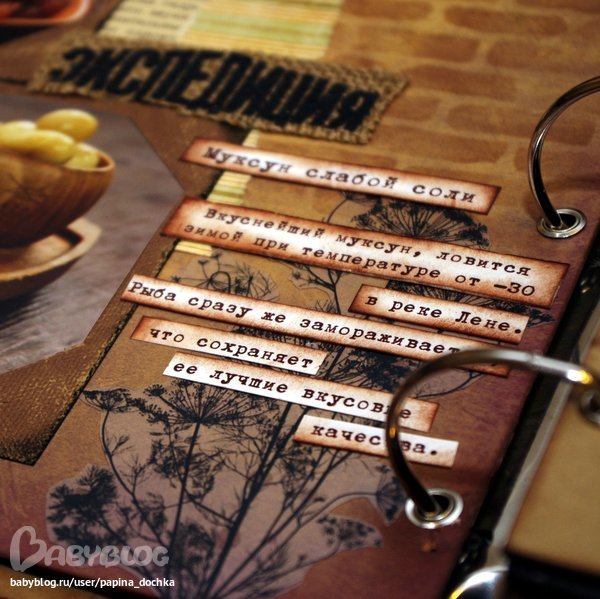 ЭКСПЕДИЦИЯ
Муксун слабой соли
Вкуснейший муксун, ловится
зимой при температуре от –30
в реке Лене.
Рыба сразу же замораживает
что сохраняет
ее лучшие вкусовые
качества.
BABYBLOG
babyblog.ru/user/papina_dochka